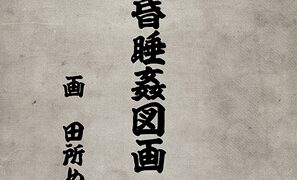 昏睡姦図画
画 田所